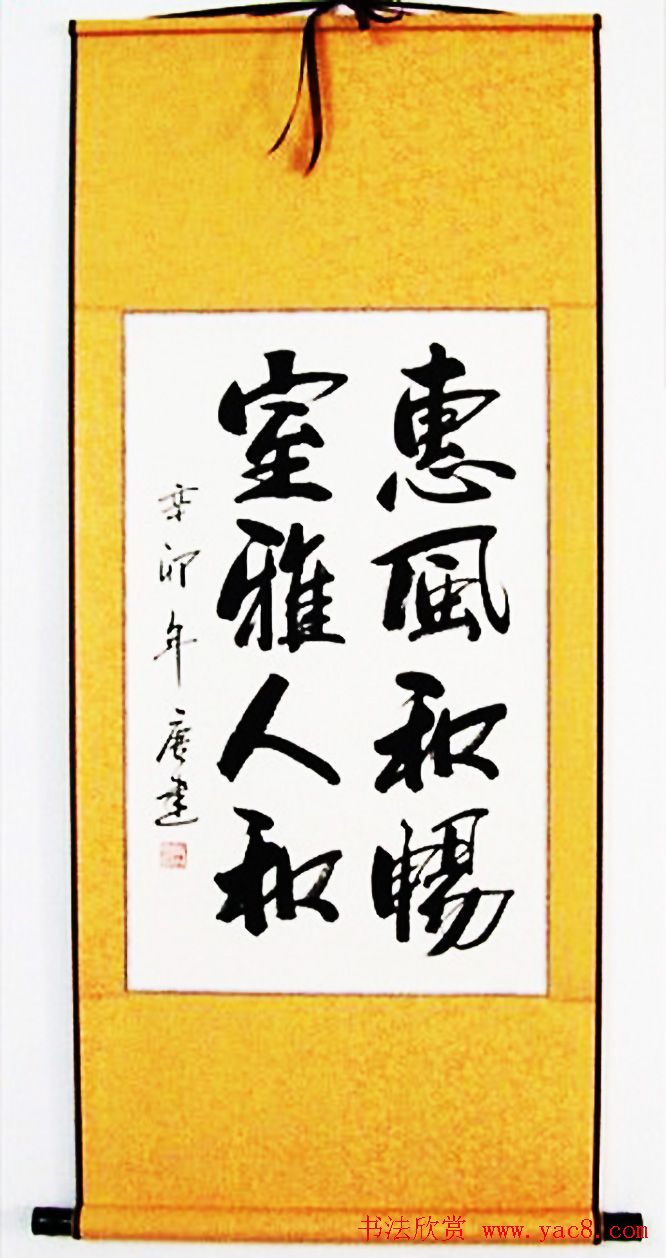 惠風和暢
室雅人和
辛卯年唐建
书法欣赏 www.yac8.com